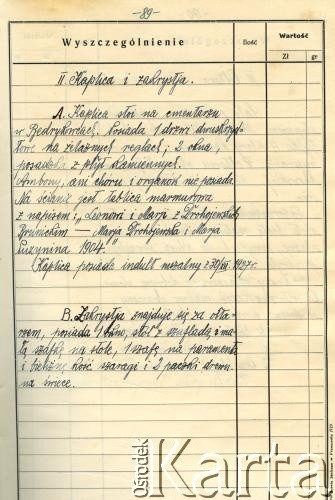 -89-
Wyszczególnienie
Ilość
Wartość
Zł gr
II. Kaplica i zakrystja.
A. Kaplica stoi na cmentarzu
w Będrykowcach. Posiada 1 drzwi dwuskrzyd-
łowe na żelaznych reglach; 2 okna,
posadzka z płyt kamiennych.
Ambony, ani chóru i organów nie posiada.
Na ścianie jest tablica marmurowa
z napisem: "Leonowi i Marji z Drohojewskich
Brunickim — Marja Drohojewska i Marja
1904."
Kaplica posiada indult mszalny z 1927 r.
B. Zakrystja znajduje się za ołta-
rzem, posiada 1 okno, stół z szufladą i ma-
łą szafkę na stole, 1 szafę na paramenta
i bieliznę kość. szaragi i 2 paczki drewn.
na świece.
Ośrodek
Karta